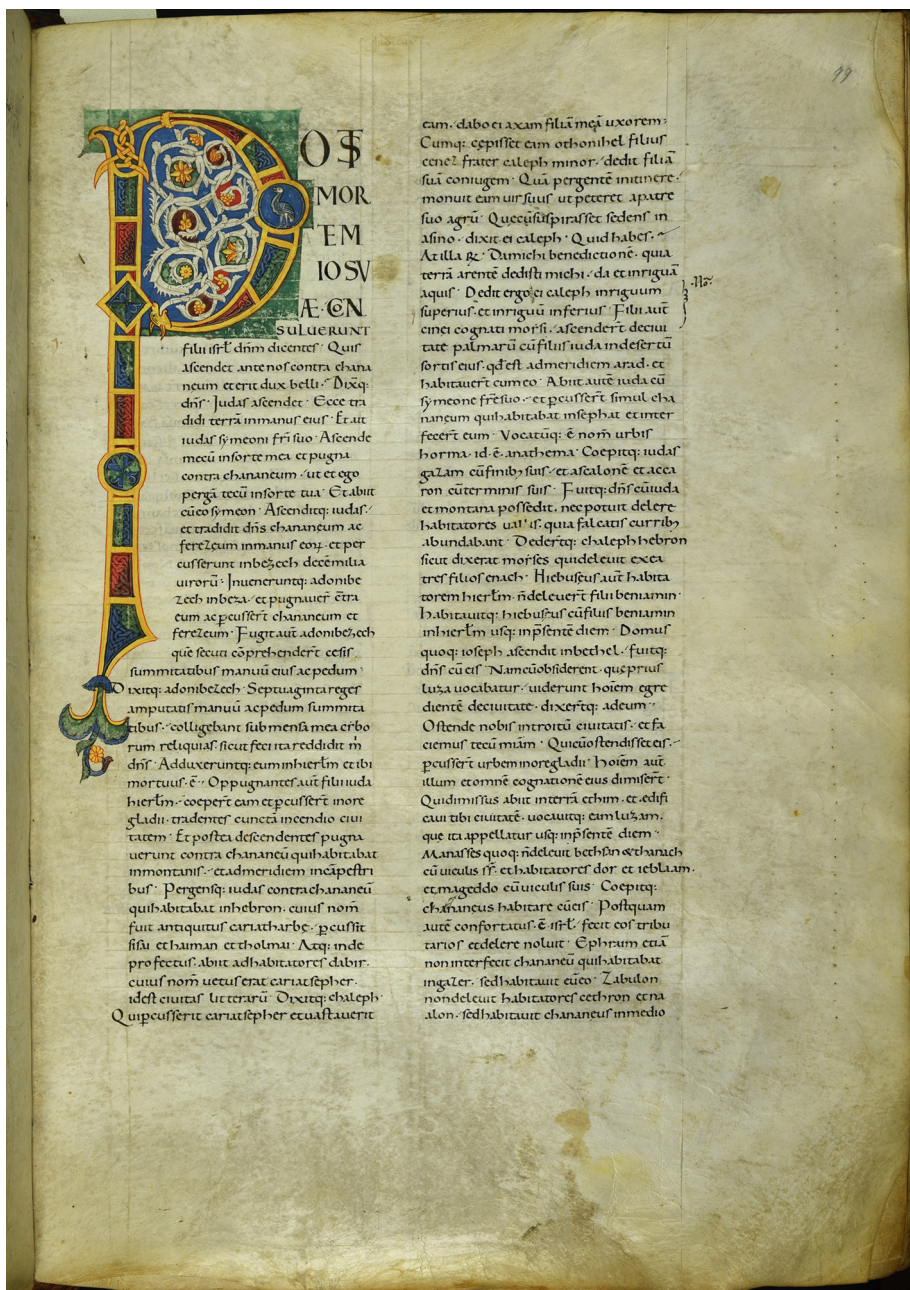 99
POST
MOR
TEM
IOSV
Æ·CON
SULUERUNT
filii isrł dn̄m dicentes· Quis
ascendet ante nos contra chana
neum et erit dux belli· Dixq:
dn̄s· Iudas ascendet· Ecce tra
didi terrā in manus eius· Et ait
iudas symeoni fr̄i suo· Ascende
mecū in sorte mea et pugna
contra chananeum· ut et ego
pergā tecū in sorte tua· Et abiit
cū eo symeon· Ascenditq: iudas·
et tradidit dn̄s chananeum ac
ferezeum in manus eoꝝ· et per
cusserunt in bezech decē milia
virorū· Inueneruntq: adonibe
zech in beza· et pugnauer̄ c̄tra
eum ac p̲cusser̄t chananeum et
ferezeum· Fugit aut̄ adonibezech
quē secuti cōprehender̄t cesis
summitatibus manuū eius ac pedum·
Dixitq: adonibezech· Septuaginta reges
amputatis manuū ac pedum summita
tibus· colligebant sub mensa mea cybo
rum reliquias sicut feci ita reddidit m̄
dn̄s· Adduxeruntq: eum in hierłm et ibi
mortuus·ē· Oppugnantes aut̄ filii iuda
hierłm· coeper̄t eam et p̲cusser̄t in ore
gladii· tradentes cunctā incendio ciui
tatem· Et postea descendentes pugna
uerunt contra chananeū qui habitabat
in montanis· et ad meridiem in cāpestri
bus· Pergensq: iudas contra chananeū
qui habitabat in hebron· cuius nom̄
fuit antiquitus cariatharbe· p̲cussit
sisai et haiman et tholmai· Atq: inde
profectus· abiit ad habitatores dabir·
cuius nom̄ uetus erat cariatsepher·
id est ciuitas litterarū· Dixitq: chaleph·
Qui p̲cusserit cariatsepher et uastauerit
eam· dabo ei axam filiā meā uxorem·
Cumq: cepisset eam othonihel filius
cenez frater caleph minor· dedit filiā
suā coniugem· Quā pergentē in itinere·
monuit eam uir suus ut peteret a patre
suo agrū· Que cū suspirasset sedens in
asino· dixit ei caleph· Quid habes·
At illa R̄· Da michi benedictionē· quia
terrā arentē dedisti michi· da et inriguā
aquis· Dedit ergo ei caleph inriguum
superius· et inriguū inferius· Filii aut̄
cinei cognati moysi· ascender̄t de ciui
tate palmarū cū filiis iuda in desertū
sortis eius· qd̄ est ad meridiem arad· et
habitauer̄t cum eo· Abiit autē iuda cū
symeone fr̄e suo· et p̲cusser̄t simul cha
naneum qui habitabat in sephat et inter
fecer̄t eum· Vocatūq: ē nom̄ urbis
horma· id·ē· anathema· Coepitq: iudas
gazam cū finib; suis· et ascalonē et acca
ron cū terminis suis· Fuitq: dn̄s cū iuda
et montana possedit· nec potuit delere
habitatores uallis· quia falcatis currib;
abundabant· Deder̄tq: chaleph hebron
sicut dixerat moyses qui deleuit ex ea
tres filios enach· Hiebuseū aut̄ habita
torem hierłm· n̄ deleuer̄t filii beniamin·
habitauitq: hiebuseus cū filiis beniamin
in hierłm usq: in p̄sentē diem· Domus
quoq: ioseph ascendit in bethel· fuitq:
dn̄s cū eis· Nam cū obsiderent· que prius
luza uocabatur· uiderunt hoīem egre
dientē de ciuitate· dixer̄tq: ad eum·
Ostende nobis introitū ciuitatis· et fa
ciemus tecū miām· Qui cū ostendisset eis·
p̲cusser̄t urbem in ore gladii· Hoīem aut̄
illum et omnē cognationē eius dimiser̄t·
Qui dimissus abiit in terrā ethim· et edifi
cauit ibi ciuitatē· uocauitq: eam luzam·
que ita appellatur usq: in p̄sentē diem·
Manasses quoq: n̄ deleuit bethsan & thanach
cū uiculis s̄s̄· et habitatores dor et ieblaam·
et mageddo cū uiculis suis· Coepitq:
chananeus habitare cū eis· Postquam
autē confortatus·ē· isrł· fecit eos tribu
tarios et delere noluit· Ephraim etiā
non interfecit chananeū qui habitabat
in gazer· sed habitauit cū eo· Zabulon
non deleuit habitatores cethron et na
alon· sed habitauit chananeus in medio